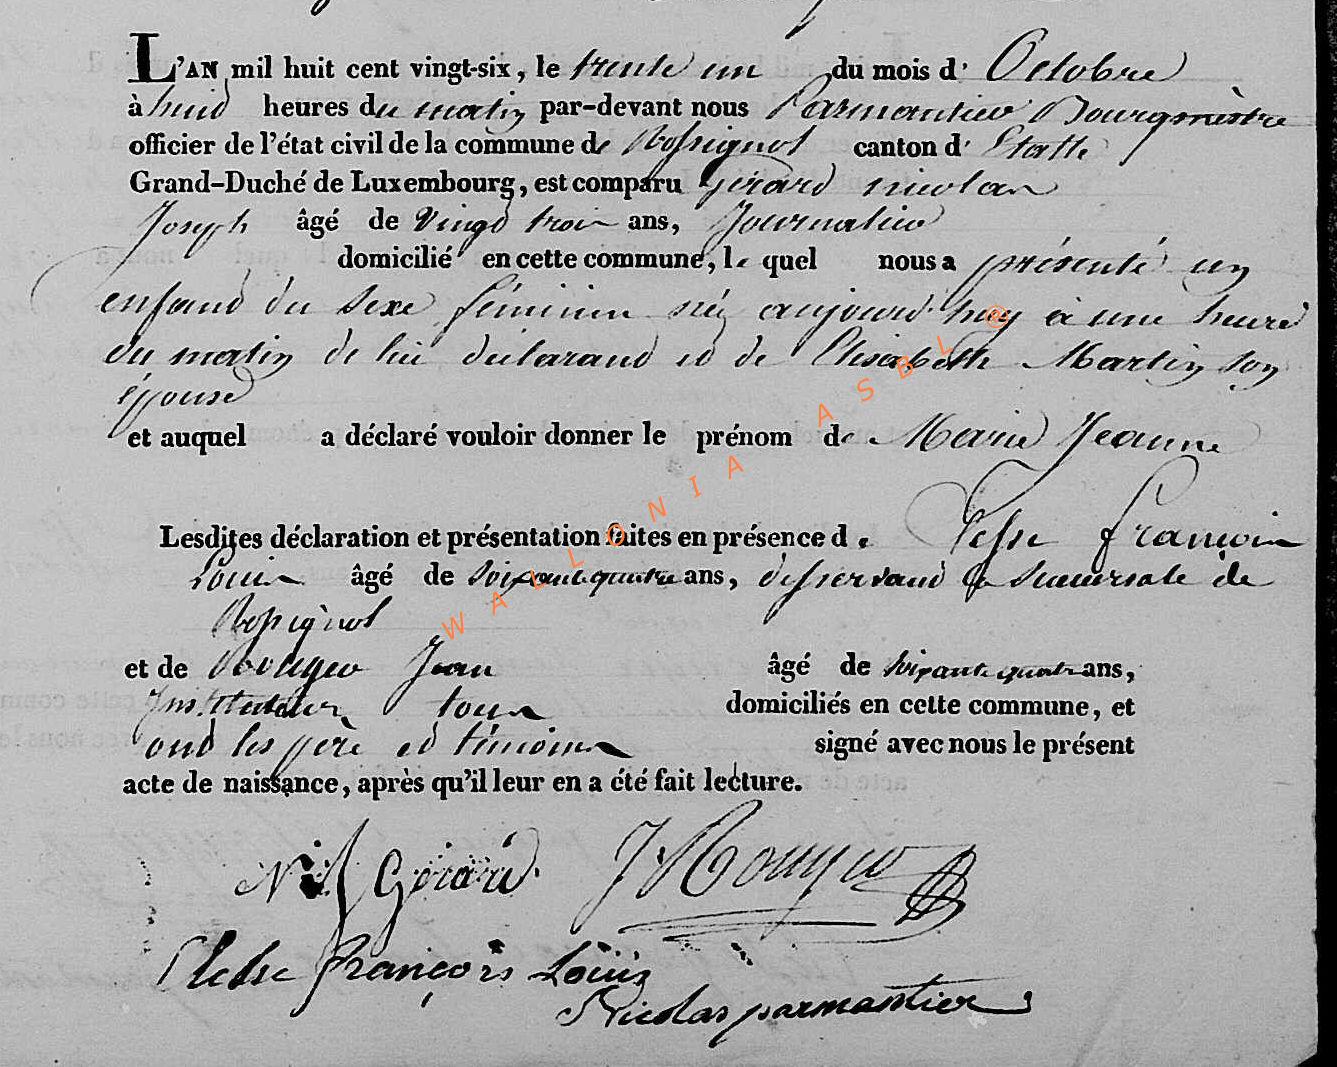 L'AN mil huit cent vingt-six, le trente un du mois d' Octobre
à huid heures du matin par-devant nous Parmantier Bourgmèstre
officier de l'état civil de la commune de Rossignol canton d' Etalle
Grand-Duché de Luxembourg, est comparu Girard nicolas
Joseph âgé de vingd trois ans, Journalier
domicilié en cette commune, le quel nous a présenté un
enfand du sexe féminin née aujourd'huy à une heure
du matin de lui déclarand et de Elisabethe Martin son
épouse
et auquel a déclaré vouloir donner le prénom de Marie Jeanne
Lesdites déclaration et présentation faites en présence de François
Louis âgé de soixante quatre ans, desservand la succursale de
Rossignol
et de Rougeo Jean âgé de soixante quatre ans,
Instituteur tous domiciliés en cette commune, et
ond les père et témoins signé avec nous le présent
acte de naissance, après qu'il leur en a été fait lecture.
N J Girard J Rougeo
François Louis
Nicolas parmantier
WALLONIA ASBL @